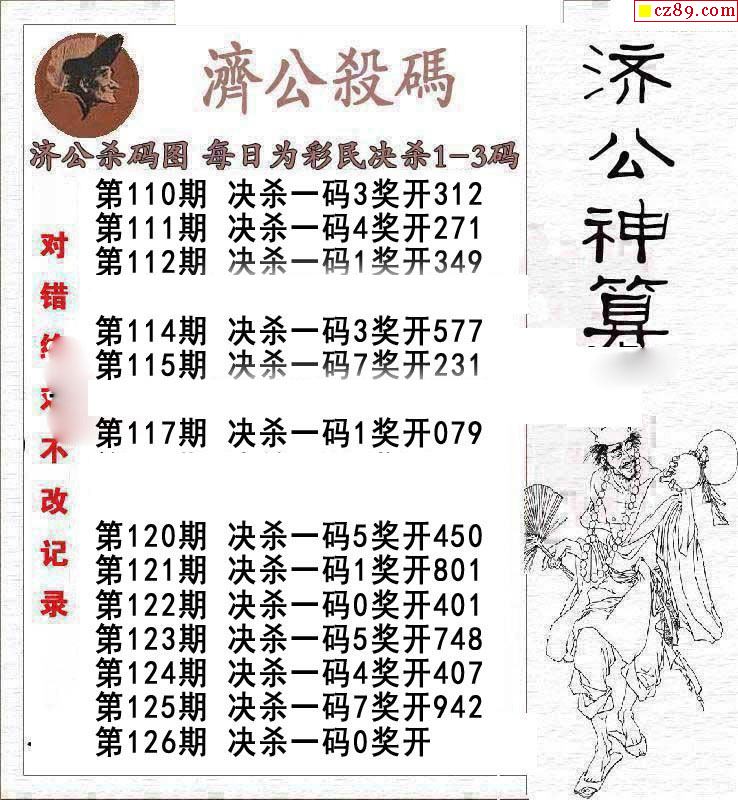 cz89.com
濟公殺碼
济公杀码图 每日为彩民决杀1-3码
第110期 决杀一码3奖开312
第111期 决杀一码4奖开271
第112期 决杀一码1奖开349
第114期 决杀一码3奖开577
第115期 决杀一码7奖开231
第117期 决杀一码1奖开079
第120期 决杀一码5奖开450
第121期 决杀一码1奖开801
第122期 决杀一码0奖开401
第123期 决杀一码5奖开748
第124期 决杀一码4奖开407
第125期 决杀一码7奖开942
第126期 决杀一码0奖开
对错不改记录
济公神算